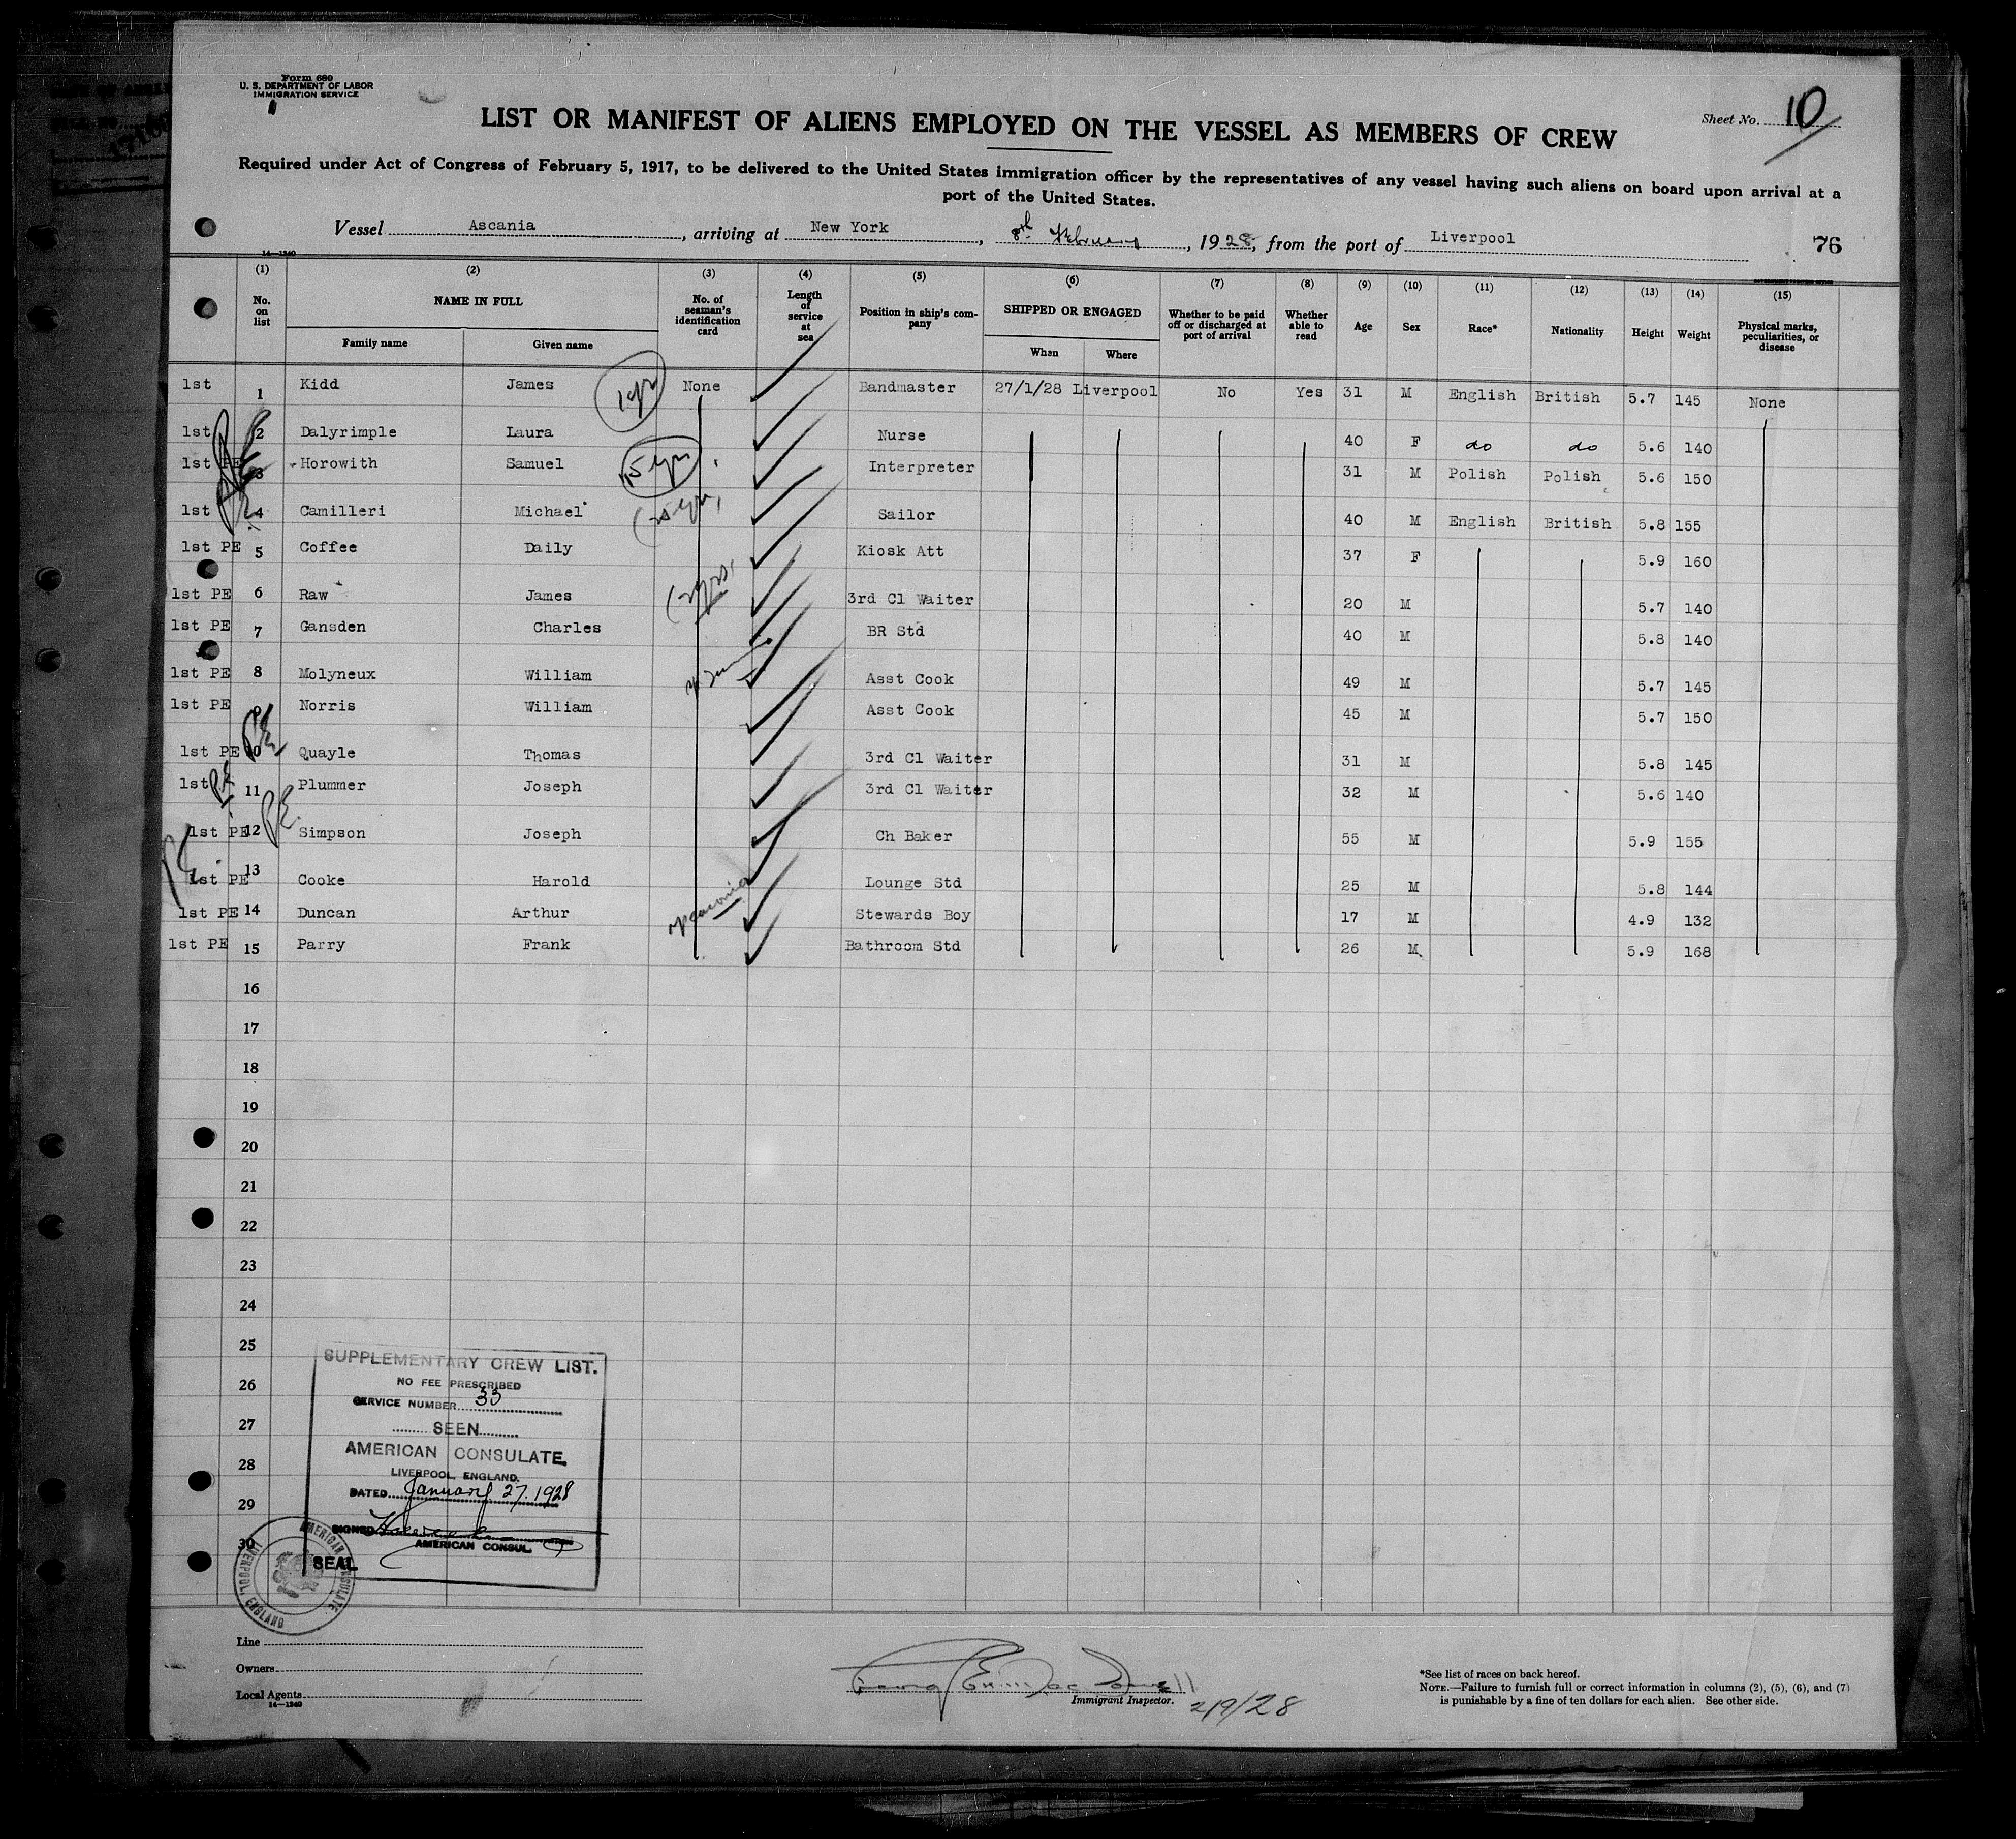 Form 680
U. S. DEPARTMENT OF LABOR
IMMIGRATION SERVICE
LIST OR MANIFEST OF ALIENS EMPLOYED ON THE VESSEL AS MEMBERS OF CREW
Sheet No. 10
Required under Act of Congress of February 5, 1917, to be delivered to the United States immigration officer by the representatives of any vessel having such aliens on board upon arrival at a
port of the United States.
Vessel Ascania, arriving at New York, 8th February, 1928, from the port of Liverpool
76
14—1240
(1) (2) (3) (4) (5) (6) (7) (8) (9) (10) (11) (12) (13) (14) (15)
No. on list NAME IN FULL No. of seaman's identification card Length of service at sea Position in ship's company SHIPPED OR ENGAGED Whether to be paid off or discharged at port of arrival Whether able to read Age Sex Race* Nationality Height Weight Physical marks, peculiarities, or disease
Family name Given name When Where
1st 1 Kidd James 1 yr None Bandmaster 27/1/28 Liverpool No Yes 31 M English British 5.7 145 None
1st 2 Dalyrimple Laura Nurse 40 F do do 5.6 140
1st PE 3 Horowith Samuel 5 yrs Interpreter 31 M Polish Polish 5.6 150
1st 4 Camilleri Michael Sailor 40 M English British 5.8 155
1st PE 5 Coffee Daily Kiosk Att 37 F 5.9 160
1st PE 6 Raw James 3rd Cl Waiter 20 M 5.7 140
1st PE 7 Gansden Charles BR Std 40 M 5.8 140
1st PE 8 Molyneux William Asst Cook 49 M 5.7 145
1st PE 9 Norris William Asst Cook 45 M 5.7 150
1st PE 10 PE Quayle Thomas 3rd Cl Waiter 31 M 5.8 145
1st PE 11 Plummer Joseph 3rd Cl Waiter 32 M 5.6 140
1st PE 12 PE Simpson Joseph Ch Baker 55 M 5.9 155
1st PE 13 Cooke Harold Lounge Std 25 M 5.8 144
1st PE 14 Duncan Arthur Stewards Boy 17 M 4.9 132
1st PE 15 Parry Frank Bathroom Std 26 M 5.9 168
16
17
18
19
20
21
22
23
24
25
26
27
28
29
30
SUPPLEMENTARY CREW LIST.
NO FEE PRESCRIBED
SERVICE NUMBER 33
SEEN
AMERICAN CONSULATE.
LIVERPOOL, ENGLAND.
DATED January 27. 1928
SIGNED
AMERICAN CONSUL.
SEAL
AMERICAN CONSULATE
LIVERPOOL, ENGLAND
Line
Owners
Local Agents
14—1240
Immigrant Inspector.
2/9/28
*See list of races on back hereof.
NOTE.—Failure to furnish full or correct information in columns (2), (5), (6), and (7)
is punishable by a fine of ten dollars for each alien. See other side.